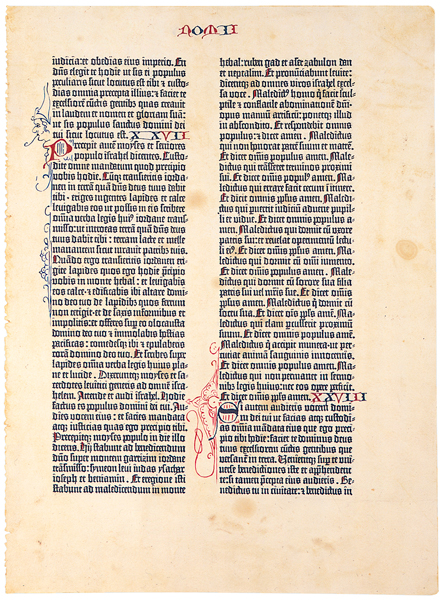 NOMII
iudicia: et obedias eius imperio. En
dñs elegit te hodie ut sis ei populus
peculiaris sicut locutus est tibi: et custo-
dias omnia precepta illius: et faciat te
excelsiorē cūctis gentibus quas creavit
in laudem et nomen et gloriam suā:
ut sis populus sanctus domini dei
tui sicut locutus est. XXVII
Precepit autē moyses et seniores
populo israhel dicentes. Custo-
dite omne mandatum quod precipio
vobis hodie. Cūq; transieritis iordā-
nem in terrā quā dñs deus tuus dabit
tibi: eriges ingentes lapides et calce
levigabis eos ut possis in eis scribere
omnia verba legis huius iordane trans-
misso: ut introeas terrā quā dñs deus
tuus dabit tibi: terram lacte et melle
manantem sicut iuravit patribus tuis.
Quādo ergo transieritis iordanem eri-
gite lapides quos ego hodie precipio
vobis in monte hebal: et levigabis
eos calce: et edificabis ibi altare domi-
no deo tuo de lapidibus quos ferrum
non tetigit: et de saxis informibus et
impolitis: et offeres sup eo olocausta
domino deo tuo: et immolabis hostias
pacificas: comedesq; ibi et epulaberis
corā domino deo tuo. Et scribes supr
lapides omnia verba legis huius pla-
ne et lucide. Dixeruntq; moyses et sa-
cerdotes levitici generis ad omnē isra-
helem. Attende et audi israhel. Hodie
factus es populus domini dei tui. Au-
dies vocem eius: et facies mandata
atq; iusticias quas ego precipio tibi.
Precepitq; moyses populo in die illo
dicens. Hij stabunt ad benedicendum
dño super montem garizim iordane
trāsmisso: symeon levi iudas ysachar
ioseph et beniamin. Et e regione isti
stabunt ad maledicendum in monte
hebal: ruben gad et aser zabulon dan
et neptalim. Et pronūciabunt levite:
dicentq; ad omnes viros israhel excel-
sa voce. Maledictus homo q facit sculp-
tile et conflatile abominationē dñi:
opus manuū artificū: ponetq; illud
in abscondito. Et respondebit omnis
populus: et dicet amen. Maledictus
qui non honorat patrē suum et matrē.
Et dicet omnis populus amen. Male-
dictus qui trāsfert terminos proximi
sui. Et dicet omnis populus amen. Ma-
ledictus qui errare facit cecum ī itinere.
Et dicet omnis populus amen. Male-
dictus qui pvertit iudiciū advene pupil-
li et vidue. Et dicet omnis populus a-
men. Maledictus qui dormit cū uxore
patris sui: et revelat operimentū lectu-
li ei9. Et dicet omnis populus amen. Ma-
ledictus qui dormit cū omi iumento.
Et dicet omnis populus amen. Male-
dictus qui dormit cū sorore sua filia
patris sui vel matris sue. Et dicet omnis
populus amen. Maledictus q dormit cū
socru sua. Et dicet oīs populus amē. Ma-
ledictus qui clam percusserit proximū
suum. Et dicet omnis populus amē.
Maledictus q accipit munera: ut per-
cutiat animā sanguinis innocentis.
Et dicet omnis populus amen. Ma-
ledictus qui non permanet in sermoni-
bus legis huius: nec eos opere perficit.
Et dicet oīs populus amen. XXVIII
Si autem audieris vocem domi-
ni dei tui ut facias atq; custodi-
as omnia mādata eius que ego preci-
pio tibi hodie: faciet te dominus deus
tuus excelsiorem cūctis gentibus que
versantur in terra. Venientq; super te uni-
verse benedictiones iste et apprehendent
te: si tamen precepta eius audieris. Be-
nedictus tu in civitate: et benedictus in